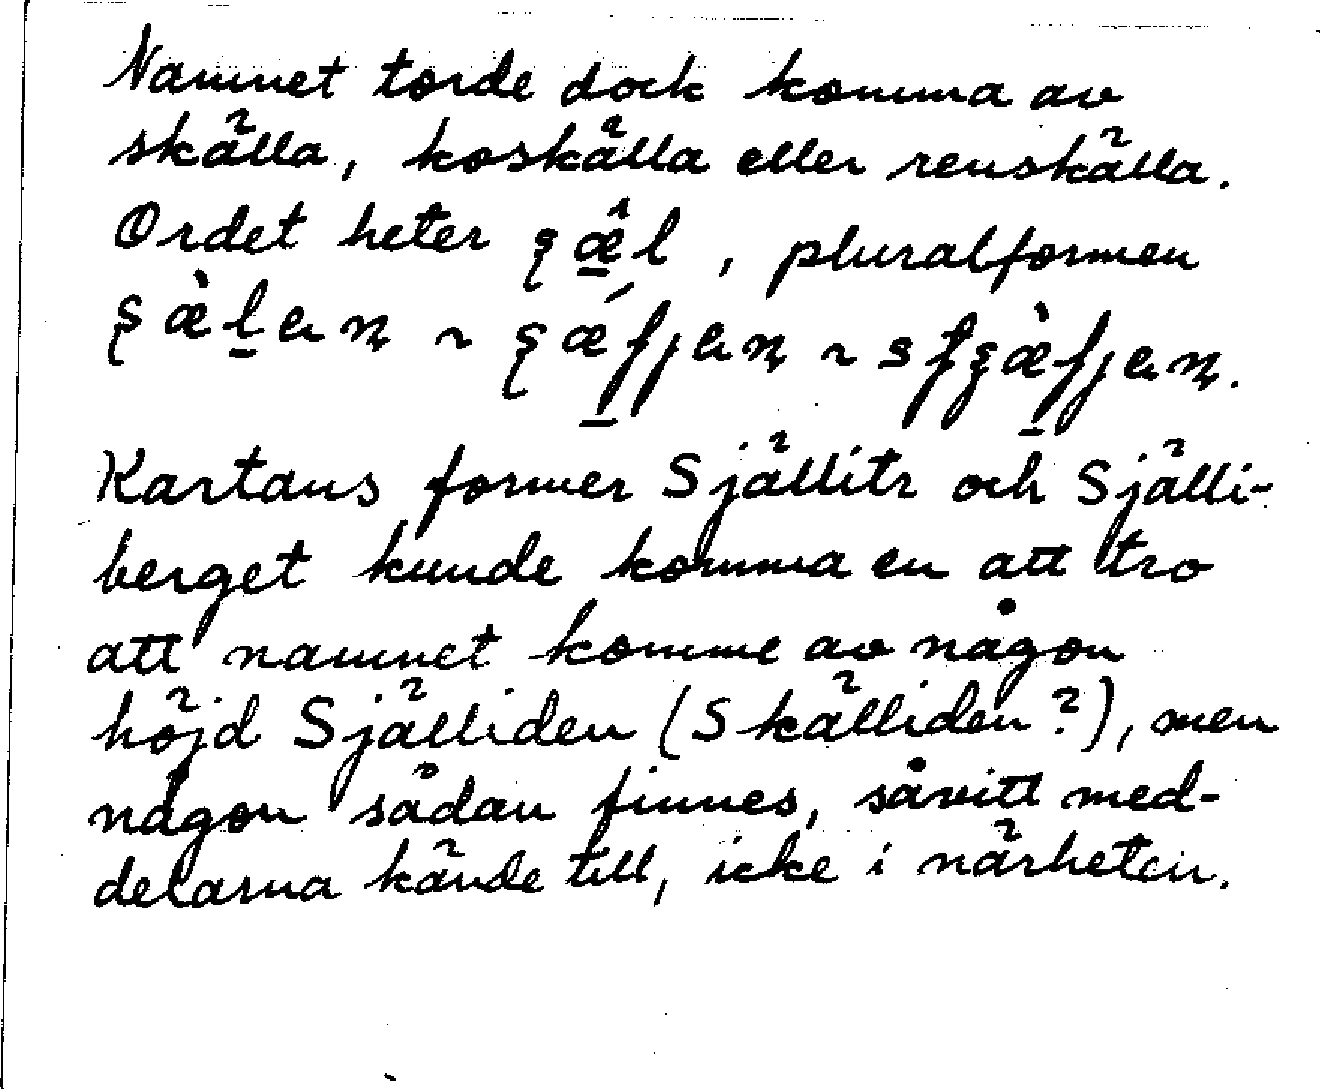 Namnet torde dock komma av
skälla, koskälla eller renskälla.
Ordet heter , pluralformen
~ ~
Kartans former Själlitr och Själli-
berget kunde komma en att tro
att namnet komme av någon
höjd Själliden (Skälliden?), men
någon sådan finnes, såvitt med-
delarna kände till, icke i närheten.